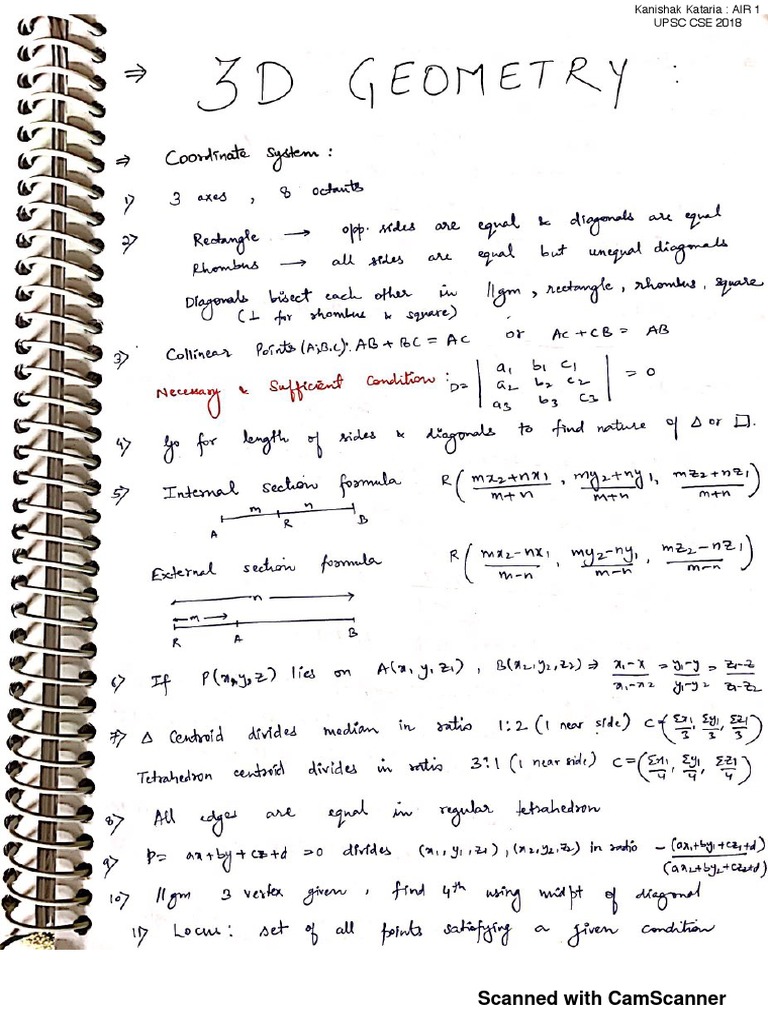 Kanishak Kataria : AIR 1
UPSC CSE 2018
⇒ 3D GEOMETRY :
⇒ Coordinate system :
1) 3 axes , 8 octants
2) Rectangle → opp. sides are equal & diagonals are equal
Rhombus → all sides are equal but unequal diagonals
Diagonals bisect each other in ||gm , rectangle , rhombus , square
(⊥ for rhombus & square)
3) Collinear Points (A,B,C): AB + BC = AC or AC + CB = AB
Necessary & Sufficient Condition : D = | a1 b1 c1 ; a2 b2 c2 ; a3 b3 c3 | = 0
4) Go for length of sides & diagonals to find nature of Δ or □.
5) Internal section formula R( (mx2+nx1)/(m+n) , (my2+ny1)/(m+n) , (mz2+nz1)/(m+n) )
m n
A R B
External section formula R( (mx2−nx1)/(m−n) , (my2−ny1)/(m−n) , (mz2−nz1)/(m−n) )
n
m
R A B
6) If P(x,y,z) lies on A(x,y,z1) , B(x2,y2,z2) ⇒ (x1−x)/(x1−x2) = (y1−y)/(y1−y2) = (z1−z)/(z1−z2)
7) Δ Centroid divides median in ratio 1:2 (1 near side) C=(Σx1/3, Σy1/3, Σz1/3)
Tetrahedron centroid divides in ratio 3:1 (1 near side) C=(Σx1/4, Σy1/4, Σz1/4)
8) All edges are equal in regular tetrahedron
9) P= ax+by+cz+d =0 divides (x1,y1,z1) , (x2,y2,z2) in ratio −(ax1+by1+cz1+d)/(ax2+by2+cz2+d)
10) ||gm 3 vertex given , find 4th using midpt of diagonal
11) Locus : set of all points satisfying a given condition
Scanned with CamScanner